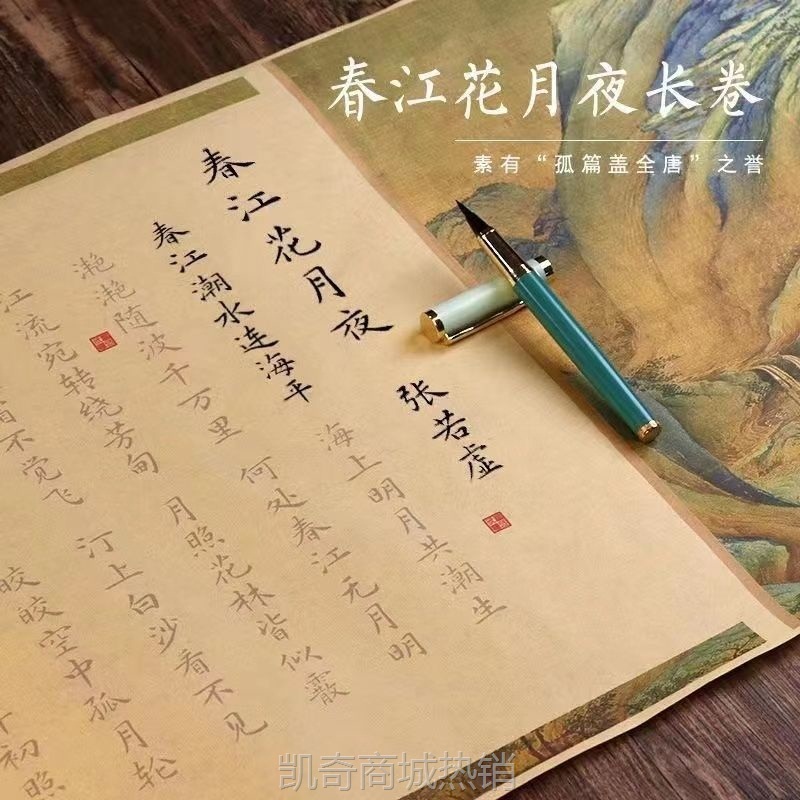 春江花月夜长卷
素有“孤篇盖全唐”之誉
春江花月夜
张若虚
春江潮水连海平
海上明月共潮生
滟滟随波千万里
何处春江无月明
江流宛转绕芳甸
月照花林皆似霰
不觉飞
汀上白沙看不见
皎皎空中孤月轮
初照
凯奇商城热销